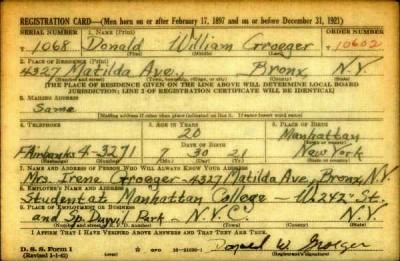 REGISTRATION CARD—(Men born on or after February 17, 1897 and on or before December 31, 1921)
SERIAL NUMBER 1. NAME (Print) ORDER NUMBER
T 1068 Donald William Groeger 10602
(First) (Middle) (Last)
2. PLACE OF RESIDENCE (Print)
4327 Matilda Ave., Bronx, N.Y.
(Number and street) (Town, township, village, or city) (County) (State)
[THE PLACE OF RESIDENCE GIVEN ON THE LINE ABOVE WILL DETERMINE LOCAL BOARD
JURISDICTION; LINE 2 OF REGISTRATION CERTIFICATE WILL BE IDENTICAL]
3. MAILING ADDRESS
Same
[Mailing address if other than place indicated on line 2. If same insert word same]
4. TELEPHONE 5. AGE IN YEARS 6. PLACE OF BIRTH
20 Manhattan
FAirbanks 4-3271 DATE OF BIRTH
7 30 21 New York
7. NAME AND ADDRESS OF PERSON WHO WILL ALWAYS KNOW YOUR ADDRESS
Mrs. Irene Groeger-4327 Matilda Ave., Bronx, N.Y.
8. EMPLOYER'S NAME AND ADDRESS
Student at Manhattan College - W. 242 St.
9. PLACE OF EMPLOYMENT OR BUSINESS
and Sp. Duyvil Park - N.Y.C. N.Y.
I AFFIRM THAT I HAVE VERIFIED ABOVE ANSWERS AND THAT THEY ARE TRUE.
D. S. S. Form 1
(Revised 1-1-42) GPO Donald W. Groeger